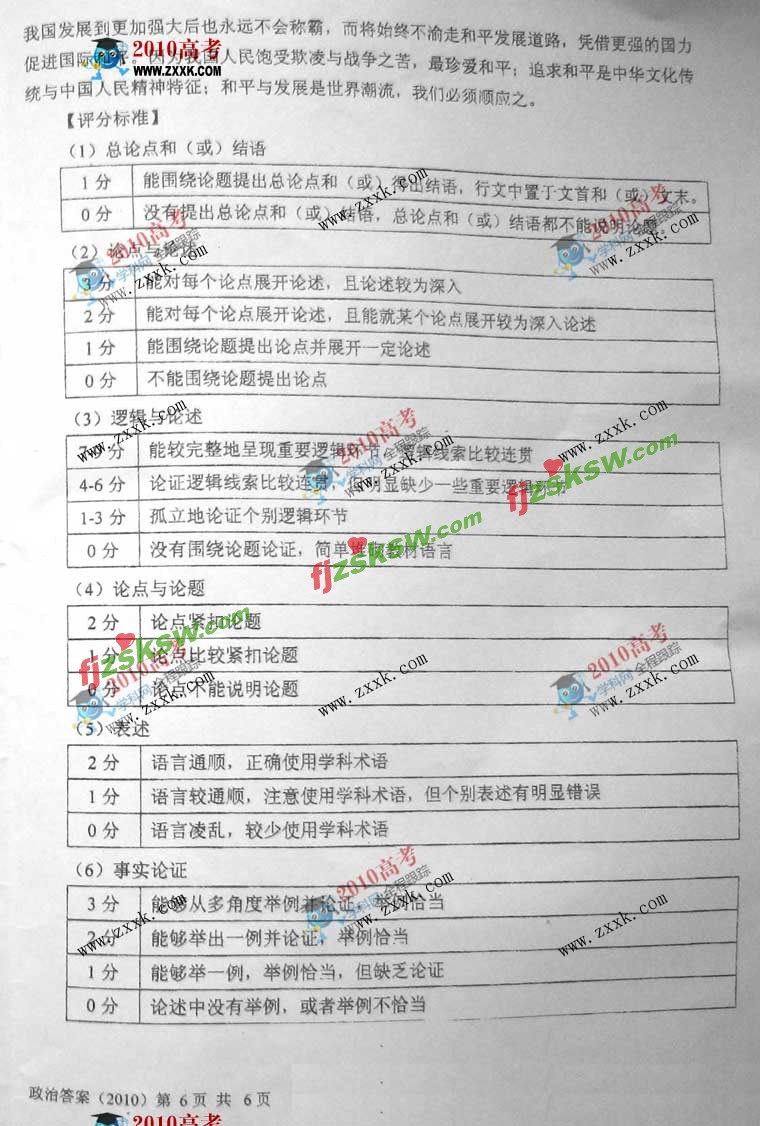 我国发展到更加强大后也永远不会称霸，而将始终不渝走和平发展道路，凭借更强的国力
2010高考
www.zxxk.com
促进国际和平。因为我国人民饱受欺凌与战争之苦，最珍爱和平；追求和平是中华文化传
统与中国人民精神特征；和平与发展是世界潮流，我们必须顺应之。
【评分标准】
（1）总论点和（或）结语
1 分 能围绕论题提出总论点和（或）得出结语，行文中置于文首和（或）文末。
0 分 没有提出总论点和（或）结语，总论点和（或）结语都不能说明论题。
www.zxxk.com
2010高考
学科网 全程跟踪
www.zxxk.com
2010高考
学科网 全程跟踪
www.zxxk.com
（2）论点与论
3 分 能对每个论点展开论述，且论述较为深入
2 分 能对每个论点展开论述，且能就某个论点展开较为深入论述
1 分 能围绕论题提出论点并展开一定论述
0 分 不能围绕论题提出论点
（3）逻辑与论述
www.zxxk.com
2010高考
学科网 全程跟踪
www.zxxk.com
www.zxxk.com
分 能较完整地呈现重要逻辑环节，逻辑线索比较连贯
4-6 分 论证逻辑线索比较连贯，但明显缺少一些重要逻辑环节
1-3 分 孤立地论证个别逻辑环节
0 分 没有围绕论题论证，简单堆砌教材语言
fjzsksw.com
fjzsksw.com
（4）论点与论题
2 分 论点紧扣论题
1 分 论点比较紧扣论题
0 分 论点不能说明论题
fjzsksw.com
2010高考
学科网 全程跟踪
www.zxxk.com
www.zxxk.com
2010高考
学科网 全程跟踪
www.zxxk.com
（5）表述
2 分 语言通顺，正确使用学科术语
1 分 语言较通顺，注意使用学科术语，但个别表述有明显错误
0 分 语言凌乱，较少使用学科术语
（6）事实论证
3 分 能够从多角度举例并论证，举例恰当
2 分 能够举出一例并论证，举例恰当
1 分 能够举一例，举例恰当，但缺乏论证
0 分 论述中没有举例，或者举例不恰当
www.zxxk.com
2010高考
学科网 全程跟踪
www.zxxk.com
www.zxxk.com
政治答案（2010）第 6 页 共 6 页
2010高考